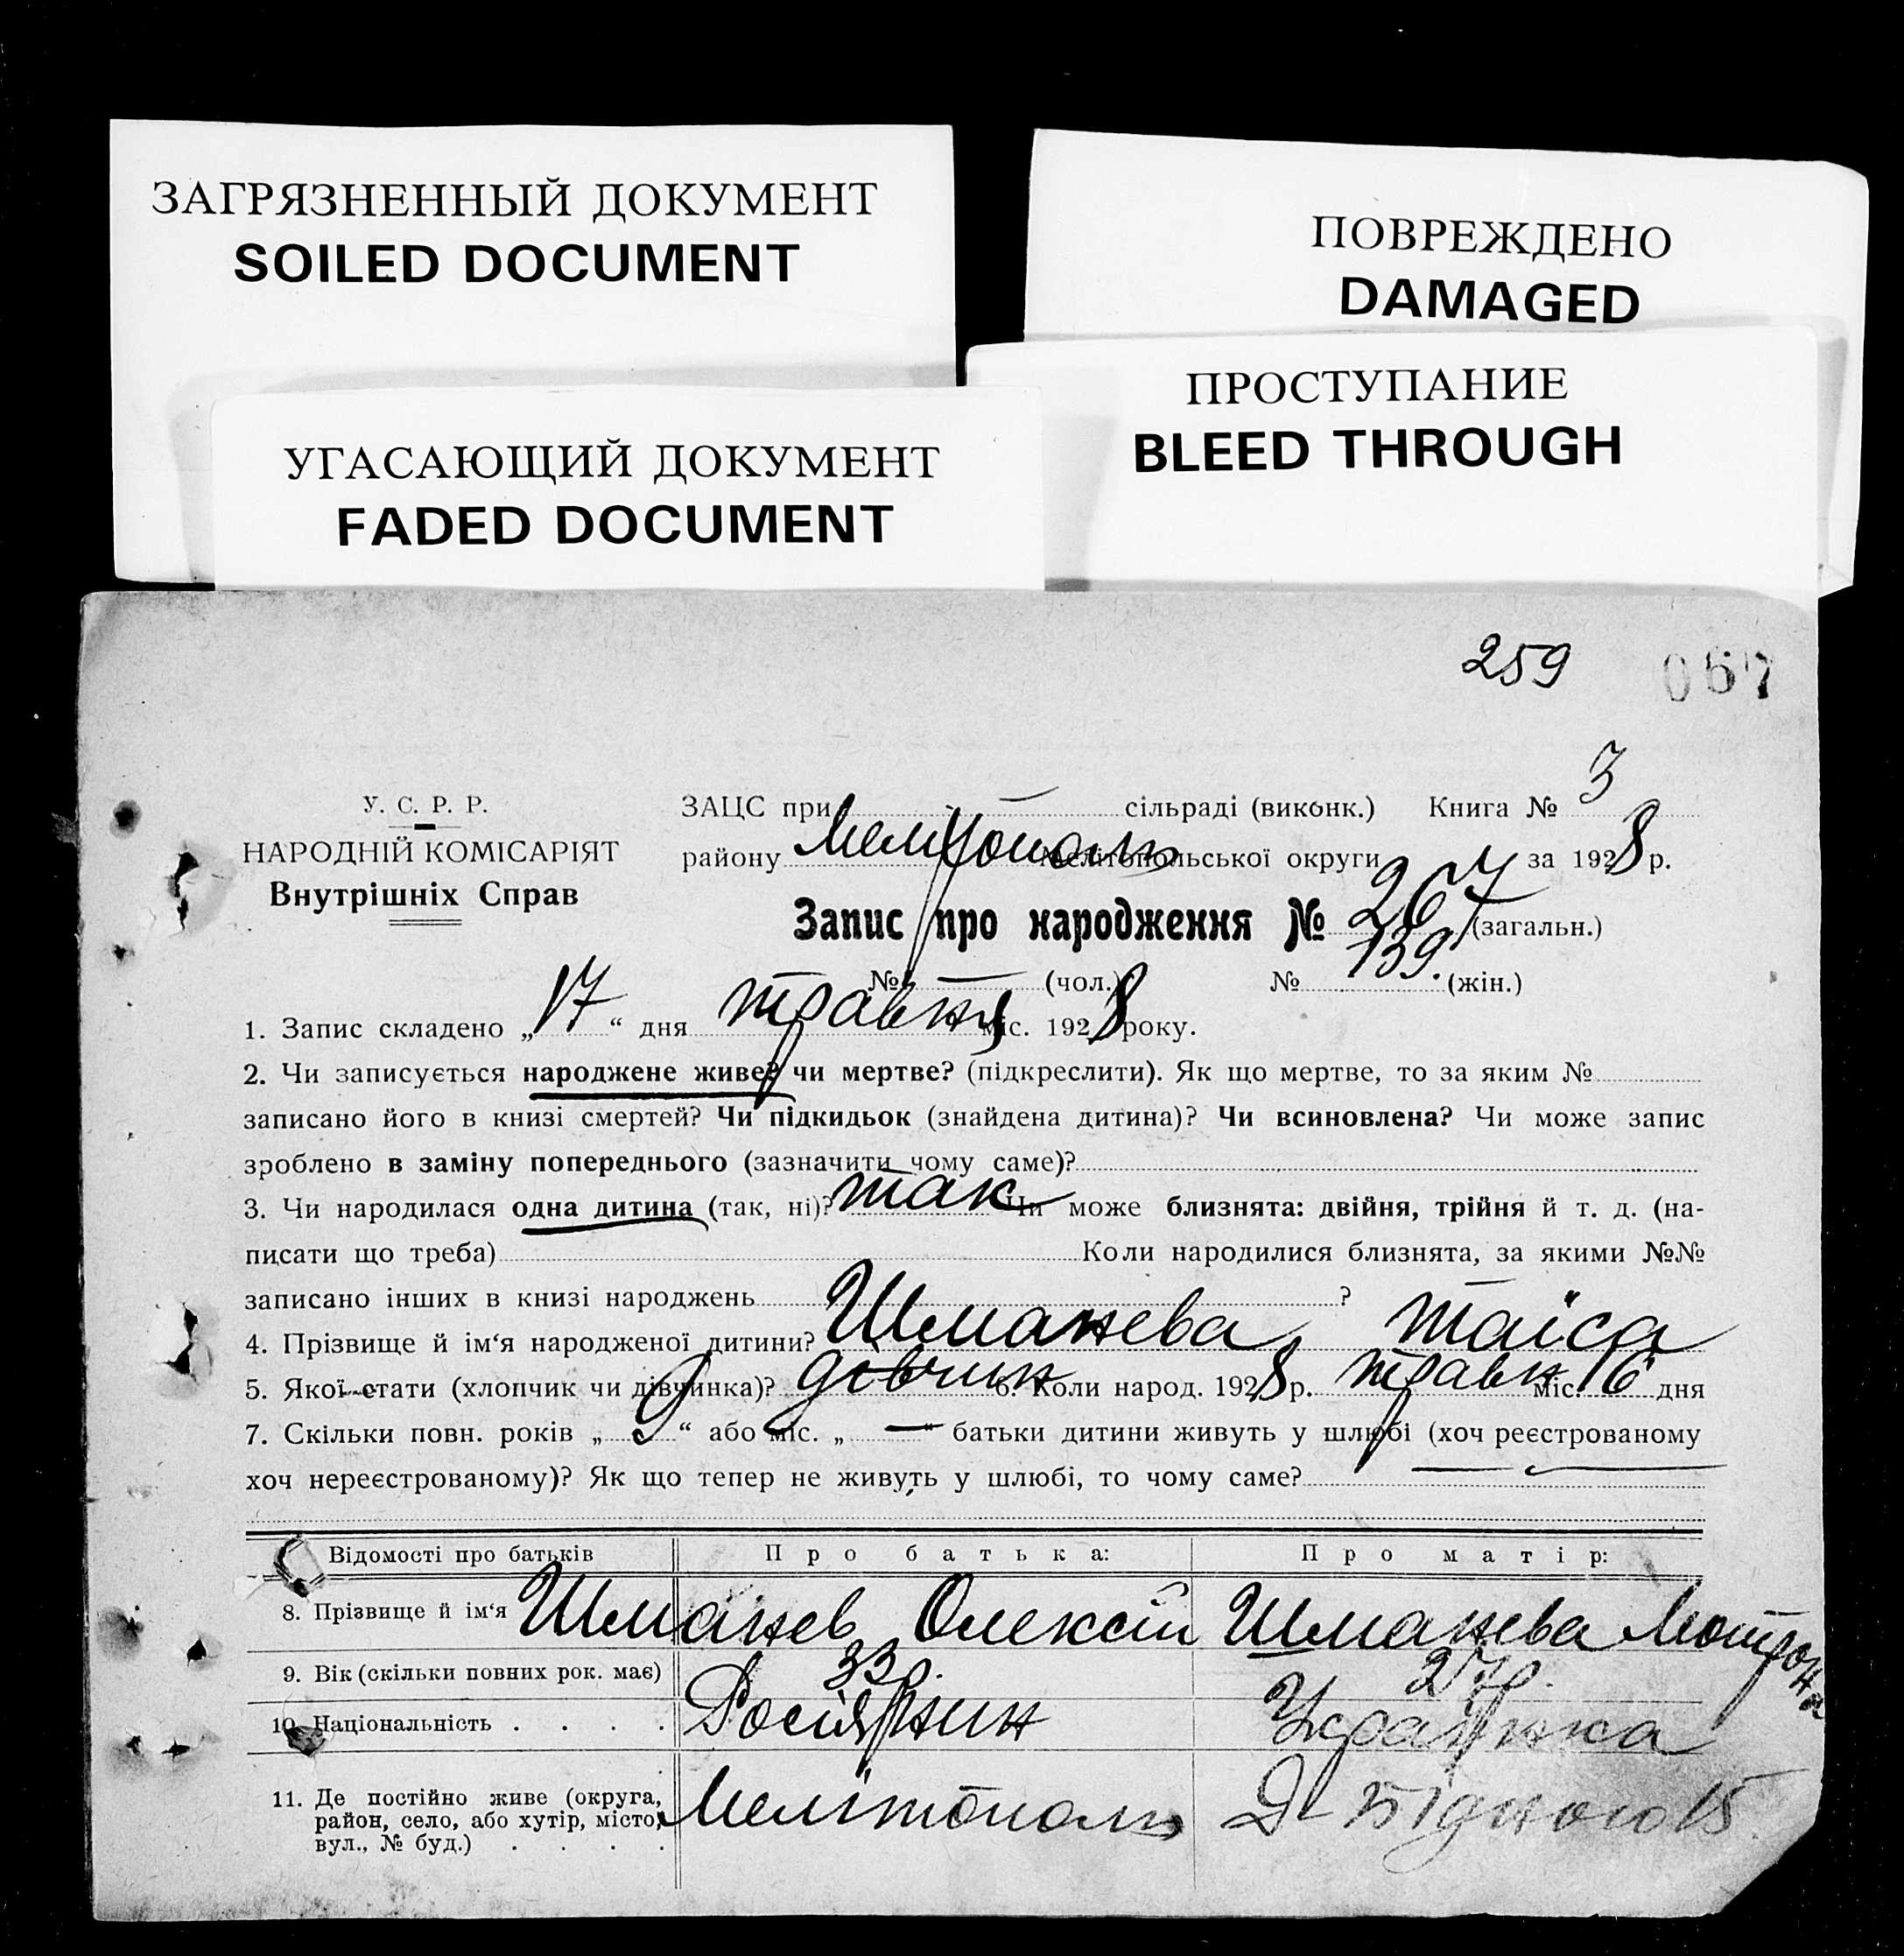 ЗАГРЯЗНЕННЫЙ ДОКУМЕНТ
SOILED DOCUMENT
ПОВРЕЖДЕНО
DAMAGED
ПРОСТУПАНИЕ
BLEED THROUGH
УГАСАЮЩИЙ ДОКУМЕНТ
FADED DOCUMENT
259 067
У. С. Р. Р.
НАРОДНІЙ КОМІСАРІЯТ
Внутрішніх Справ
ЗАЦС при сільраді (виконк.) Книга № 3
району Мелітополь Мелітопольської округи за 1928 р.
Запис про народження № 267 (загальн.)
№ — (чол.) № 139. (жін.)
1. Запис складено „17“ дня травня міс. 1928 року.
2. Чи записується народжене живе? чи мертве? (підкреслити). Як що мертве, то за яким №
записано його в книзі смертей? Чи підкидьок (знайдена дитина)? Чи всиновлена? Чи може запис
зроблено в заміну попереднього (зазначити чому саме)?
3. Чи народилася одна дитина (так, ні)? так Чи може близнята: двійня, трійня й т. д. (на-
писати що треба) Коли народилися близнята, за якими №№
записано інших в книзі народжень ?
4. Прізвище й ім‘я народженої дитини? Шманева Таїса
5. Якої стати (хлопчик чи дівчинка)? дівчин 6. Коли народ. 1928 р. травн міс. 16 дня
7. Скільки повн. років „9“ або міс. „—“ батьки дитини живуть у шлюбі (хоч реєстрованому
хоч нереєстрованому)? Як що тепер не живуть у шлюбі, то чому саме?
Відомості про батьків Про батька: Про матір:
8. Прізвище й ім‘я Шманев Олексій Шманева Мотрона
9. Вік (скільки повних рок. має) 33 р. 27 р.
10. Національність . . . . Росіянин Українка
11. Де постійно живе (округа,
район, село, або хутір, місто, Мелітополь 15
вул., № буд.) . . . .